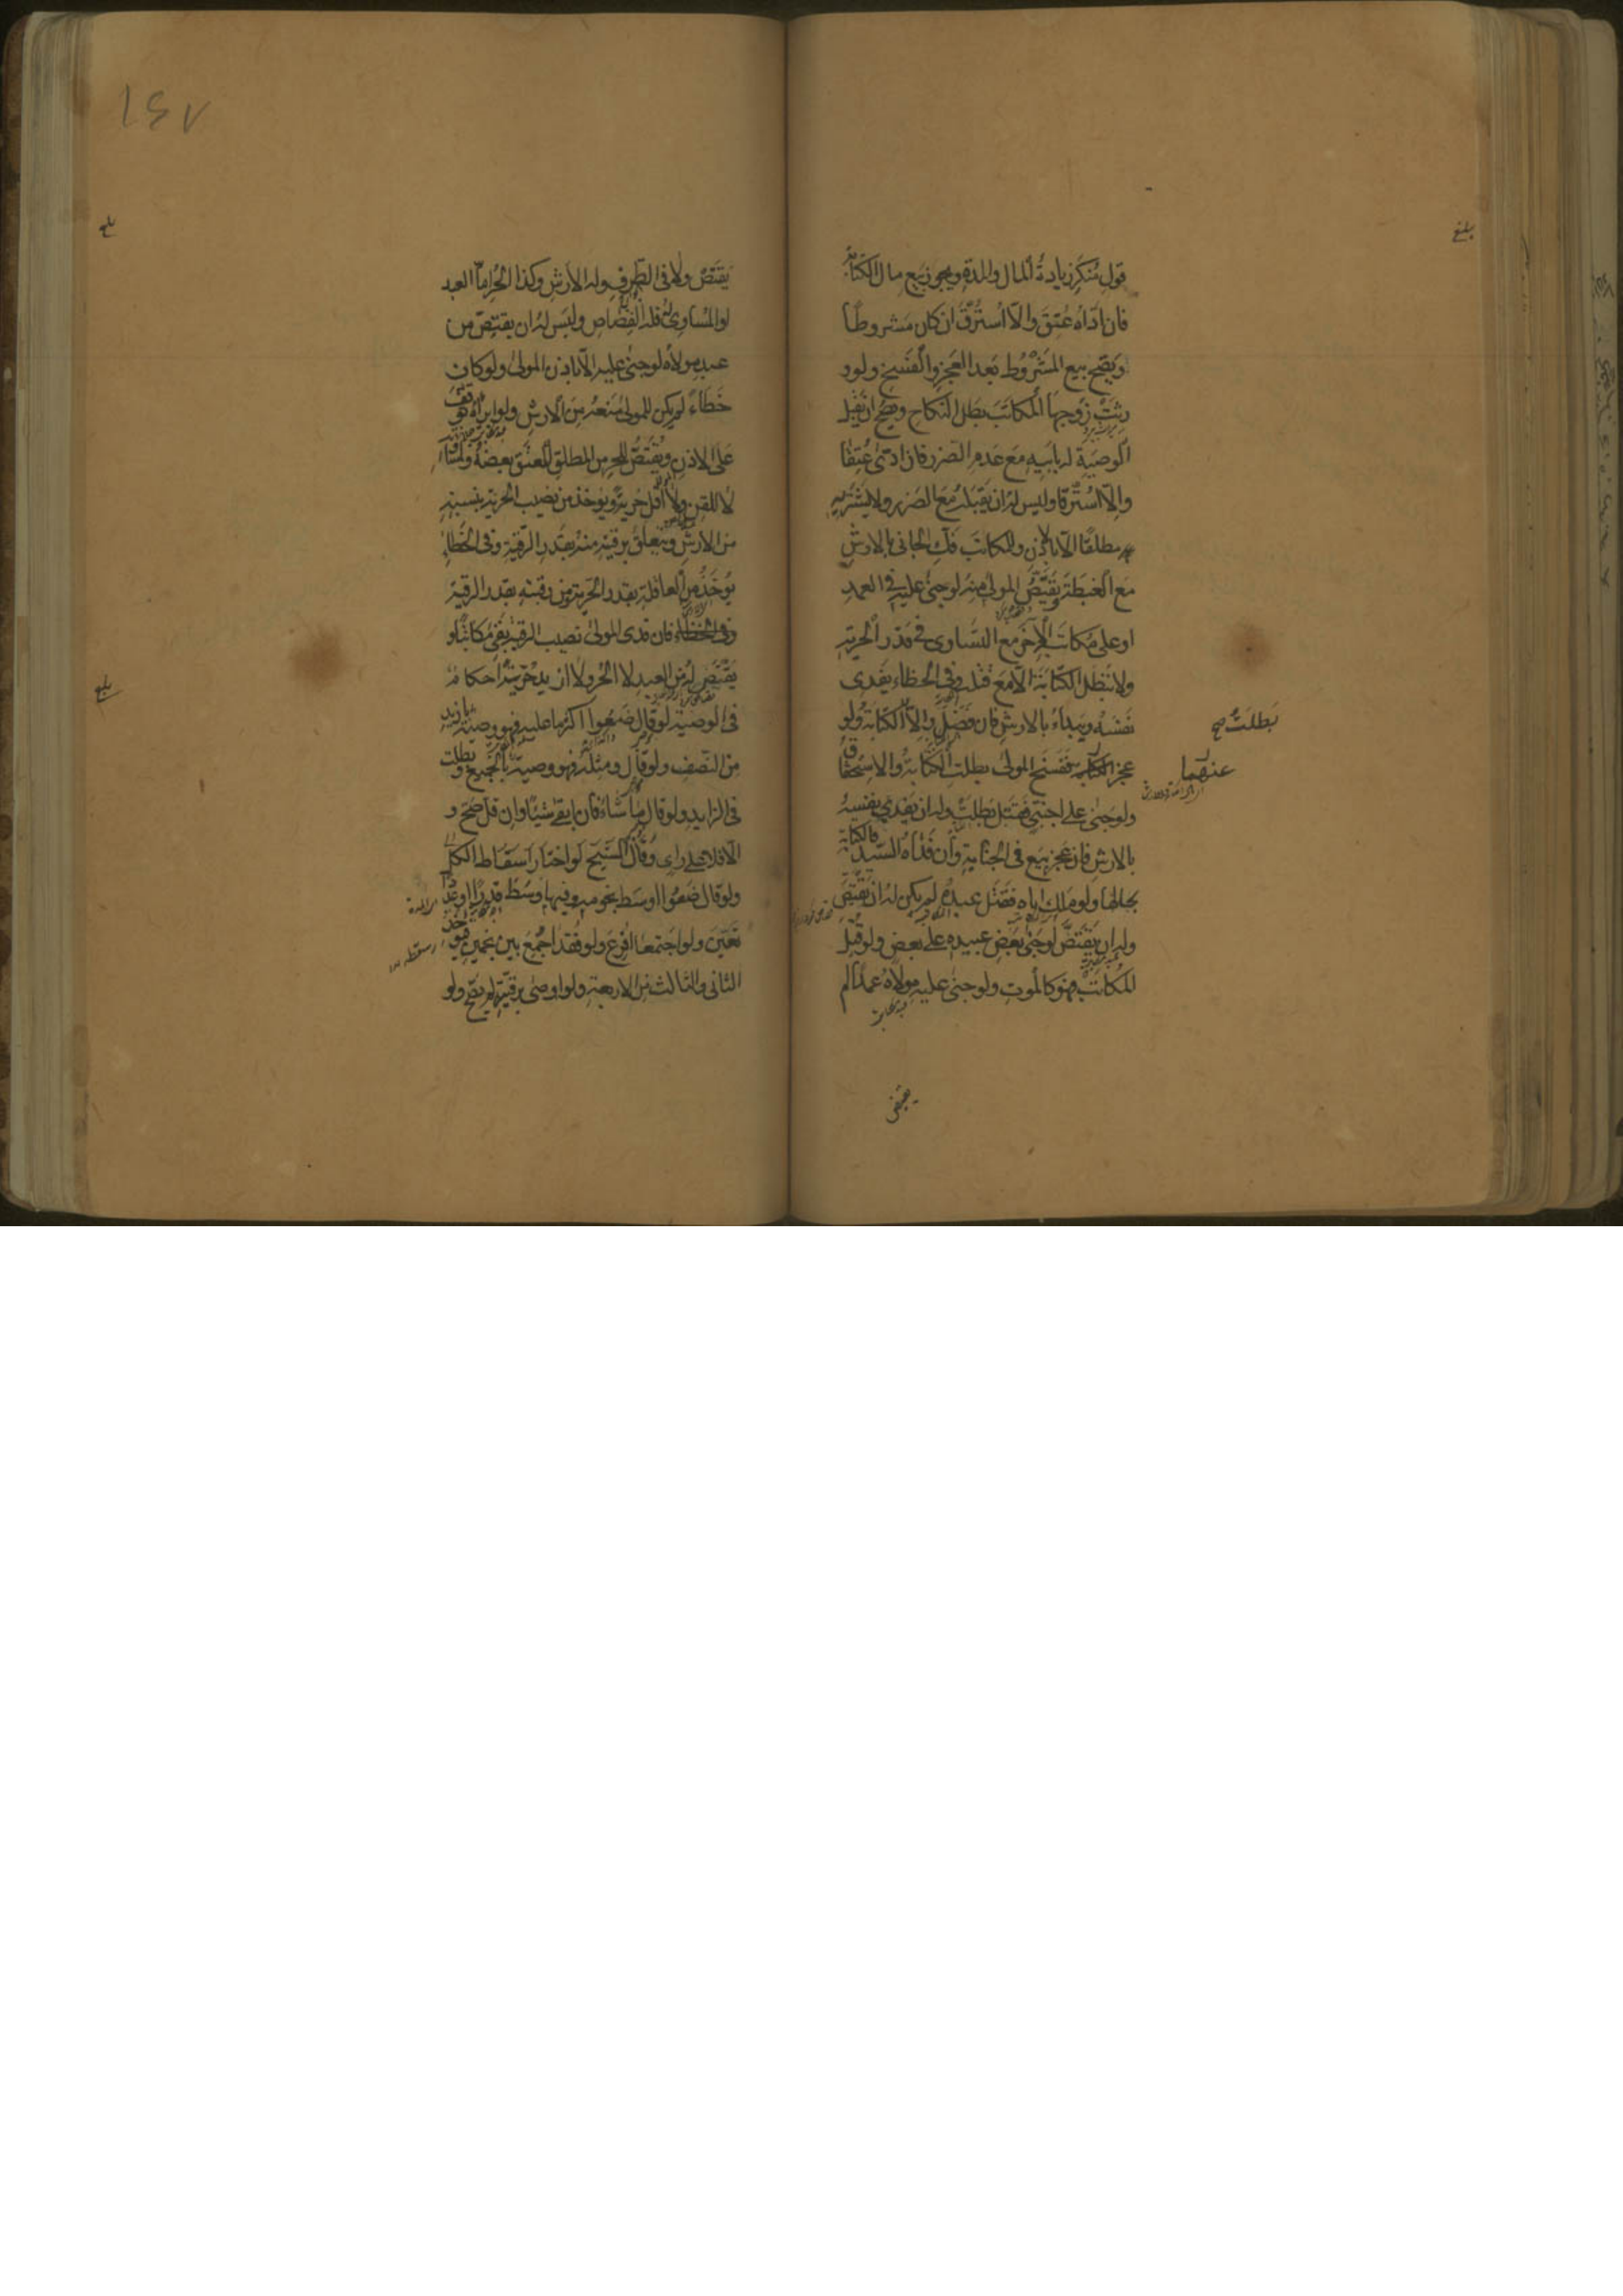 بلغ
قول منكر زيادة المال والمدة ويجوز بيع مال الكتابة
فان اداه عتق والا استرق ان كان مشروطا
ويصح بيع المشروط بعد العجز والفسخ ولو و
رثت زوجها المكاتب بطل النكاح ويصح ان يقبل
الوصية له بابيه مع عدم الضرر فان ادى عتقا
والا استرقا وليس له ان يقبله مع الضرر ولا يشتريه
مطلقا الا بالاذن وللمكاتب فك الجاني بالارش
مع الغبطة ويقتص المولى منه لو جنى عليه في العمد
او على مكاتب الاخر مع التساوى في قدر الحرية
ولا تبطل الكتابة الا مع قتله وفي الخطاء يفدى
نفسه ويبداء بالارش فان فضل والا الكتابة ولو
بطلت صح
عجز ففسخ المولى بطلت الكتابة والاستحقاق
عنهما
ولو جنى على اجنبي فقتل بطلت وله ان يفدي نفسه
بالارش فان عجز بيع في الجناية وان فداه السيد فالكتابة
بحالها ولو ملك اباه فقتل عبده لم يكن له ان يقتص
وله ان يقتص لو جنى بعض عبيده على بعض ولو قتل
المكاتب فهو كالموت ولو جنى عليه مولاه عمدا لم
يقتص
بلغ
يقتص ولا في الطرف وله الارش وكذا الحر اما العبد
او المساوى له فله القصاص وليس له ان يقتص من
عبد مولاه لو جنى عليه الا باذن المولى ولو كان
خطاء لم يكن للمولى منعه من الارش ولو ابراه توقف
على الاذن ويقتص للحر من المطلق المعتق بعضه
لا للقن ولا اقل حرية ويوخذ من نصيب الحرية بنسبته
من الارش ويتعلق برقبته منه بقدر الرقية وفي الخطاء
يوخذ من العاقلة بقدر الحرية ومن رقبته بقدر الرقية
فان فدى المولى نصيب الرقية بقى مكاتبا و
يقتص له من العبد لا الحر ولا ازيد حرية احكامه
بلغ
في الوصية لو قال ضعوا اكثر ما عليه فهو وصية بما زيد
من النصف ولو قال ومثله فهو وصية بالجميع وبطلت
في الزايد ولو قال ما شاء فان ابقى شيئا وان قل صح و
الا فلا على راى وقال الشيخ لو اختار اسقاط الكل
ولو قال ضعوا اوسط نجومه وفيها اوسط قدرا او عددا
تعين ولو اجتمعا اقرع ولو فقد اجمع بين نجمين فيوخذ
الثاني والثالث من الاربعة ولو اوصى برقبته لم يصح ولو